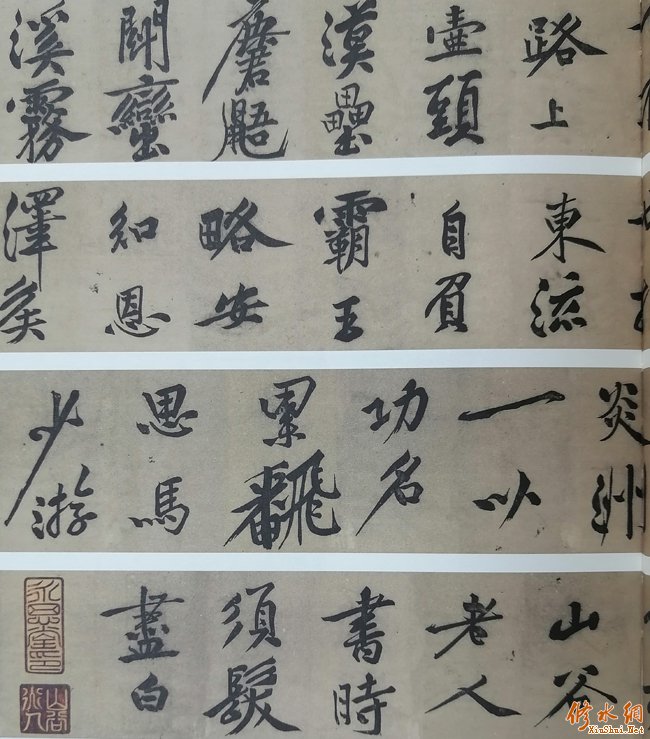 路上
壺頭
漢壘
麏鼯
鬭蠻
溪霧
東流
自負
霸王
略安
知恩
澤矦
炎洲
一以
功名
累飜
思馬
少游
山谷
老人
書時
須髮
盡白
修水網
XinShui.Net